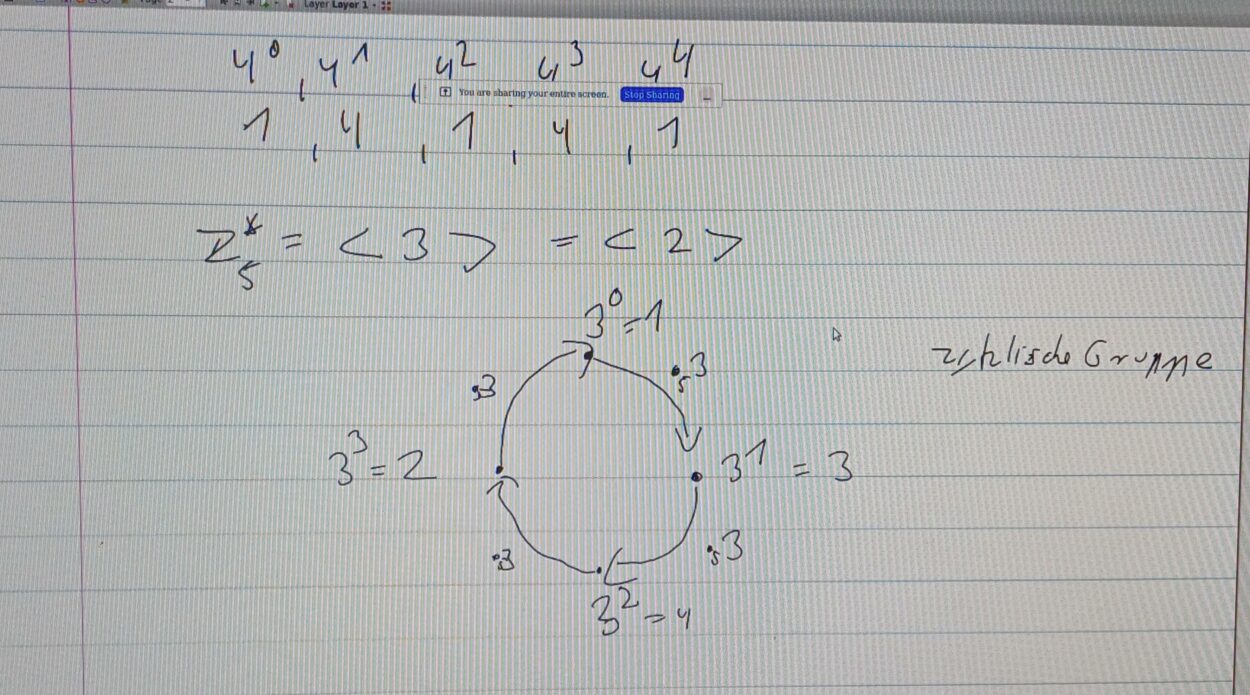 Layer Layer 1
4⁰, 4¹, 4² 4³ 4⁴
You are sharing your entire screen. Stop Sharing
1, 4, 1, 4, 1
Z₅* = < 3 > = < 2 >
3⁰ = 1
zyklische Gruppe
·₅3 ·₅3
3³ = 2 3¹ = 3
·₅3 ·₅3
3² = 4